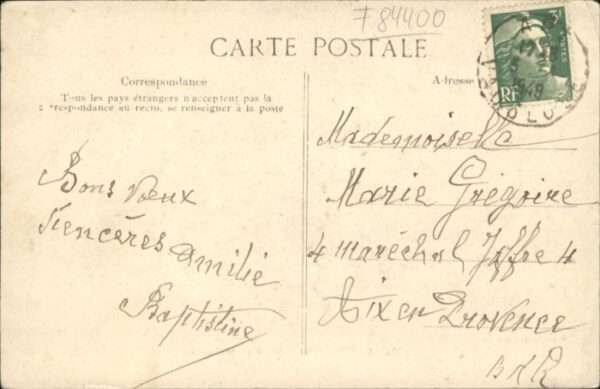 F 84400
CARTE POSTALE
Correspondance
Tous les pays étrangers n'acceptent pas la
respondance au recto, se renseigner à la poste
Adresse
RF
1949
Bons Vœux
Sencères Amilié
Baptistine
Mademoiselle
Marie Grégoire
4 maréchal Joffre 4
Aix en Provence
BKR